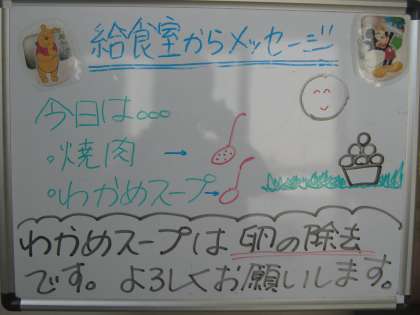 給食室からメッセージ
今日は。。。
。焼肉 →
。わかめスープ→
わかめスープは卵の除去
です。よろしくお願いします。